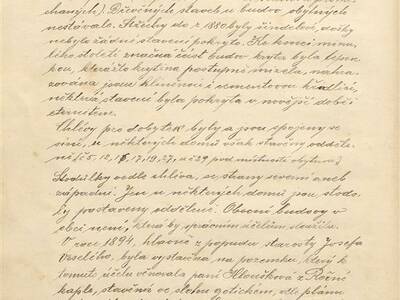 chaných). Dřevěných staveb u budov obytných
nestávalo. Střechy do r. 1880 byly šindelové, došky
nebylo žádné stavení pokryto. Ke konci minu-
lého století značná část budov kryta byla lepen-
kou, kterážto krytina postupně mizela, nahra-
zována jsouc hlinenou i cementovou křidlicí,
některá stavení byla pokryta v novější době i
eternitem.
Chlévy pro dobytek byly a jsou spojeny se
síní, u některých domů však stavěny oddělе-
ně (č 5, 12, 17, 19, 27, a č 29 pod místností obytnou)
Stodůlky vedle chléva, se strany severní aneb
západní. Jen u některých domů jsou stodo-
ly postaveny odděleně. Obecní budovy v
obci není, která by správním účelům sloužila.
V roce 1894, hlavně z popudu starosty Josefa
Veselého, byla vystavěna na pozemku, který k
tomuto účelu věnovala paní Hlouškova z Ročné
kaple, stavěná ve slohu gotickém, dle plánu